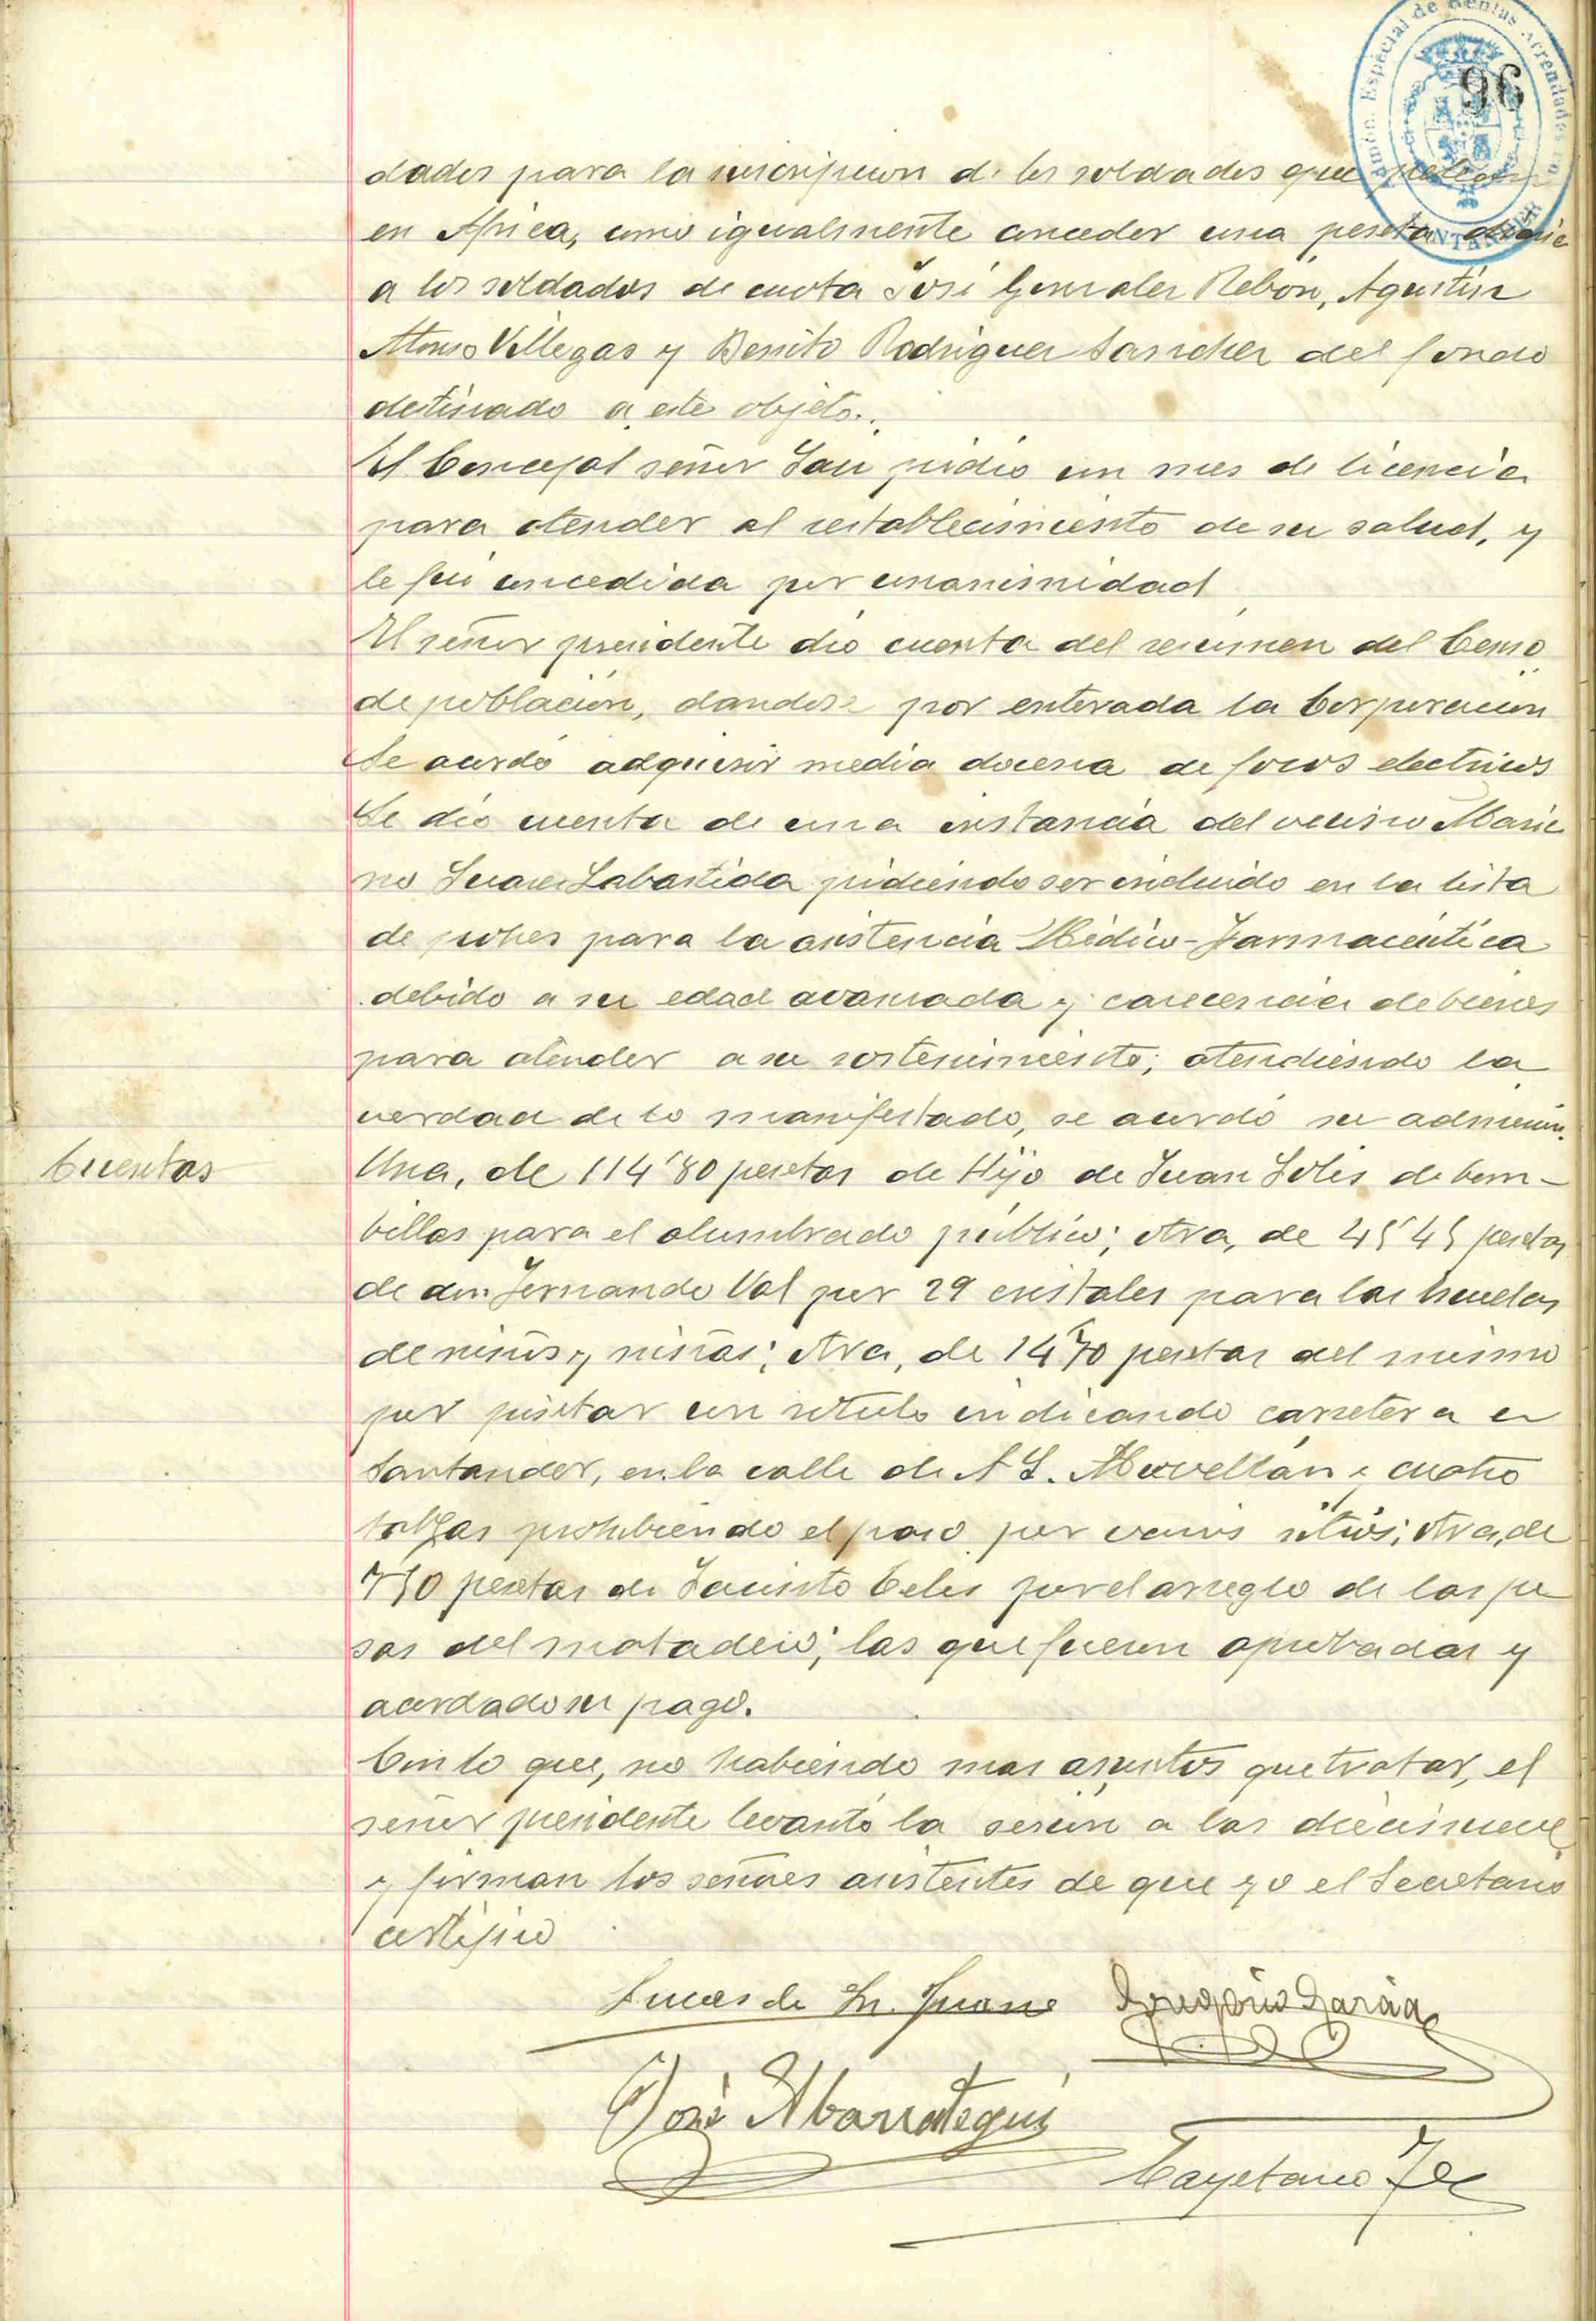 96
dades para la suscripcion de los soldados que pelean
en Africa, como igualmente conceder una peseta diaria
a los soldados de cuota José Gonzalez Rebón, Agustin
Alonso Villegas y Benito Rodriguez Sanchez del fondo
destinado a este objeto.
El Concejal señor Sau pidio un mes de licencia
para atender al restablecimiento de su salud, y
le fue concedida por unanimidad
El señor presidente dio cuenta del resumen del Censo
de poblacion, dandose por enterada la Corporacion
Se acordó adquirir media docena de focos electricos
Se dio cuenta de una instancia del vecino Maria
no Suarez Labastida pidiendo ser incluido en la lista
de pobres para la asistencia Médico-Farmaceútica
debido a su edad avanzada y carecencia de bienes
para atender a su sostenimiento; atendiendo la
verdad de lo manifestado, se acordó su admision.
Cuentas
Una, de 114'80 pesetas de Hijo de Juan Solis de bom-
billas para el alumbrado publico; otra, de 45'45 pesetas
de don Fernando Val por 29 cristales para las escuelas
de niños y niñas; otra, de 14'70 pesetas del mismo
por pintar un rotulo indicando carretera a
Santander, en la calle de A S. Movellán y cuatro
tablas prohibiendo el paso por varios sitios; otra, de
7'50 pesetas de Jacinto Celis por el arreglo de las pe
sas del matadero; las que fueron aprobadas y
acordado su pago.
Con lo que, no habiendo mas asuntos que tratar, el
señor presidente levantó la sesion a las diecinueve
y firman los señores asistentes de que yo el Secretario
certifico
Lucas de Gregorio Garcia
José Abarrategui
Cayetano